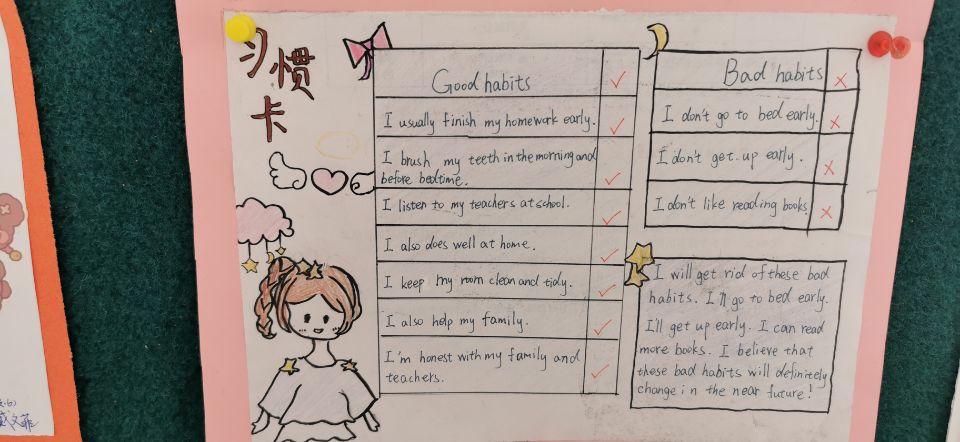 习惯
卡
Good habits
I usually finish my homework early.
I brush my teeth in the morning and
before bedtime.
I listen to my teachers at school.
I also does well at home.
I keep my room clean and tidy.
I also help my family.
I'm honest with my family and
teachers.
Bad habits
I don't go to bed early.
I don't get up early.
I don't like reading books.
I will get rid of these bad
habits. I'll go to bed early.
I'll get up early. I can read
more books. I believe that
these bad habits will definitely
change in the near future!